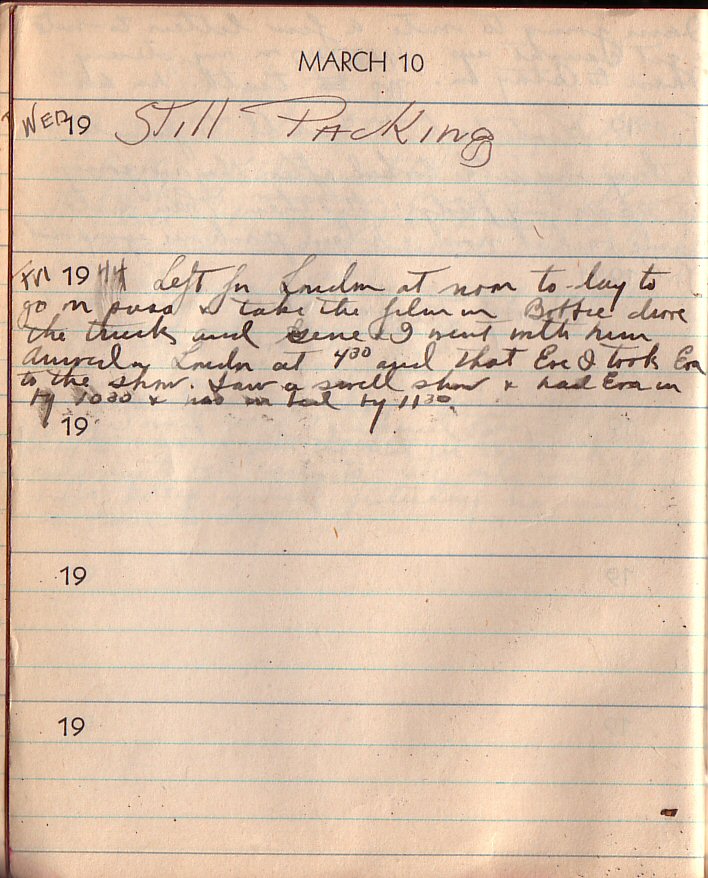 MARCH 10
WED 19 Still Packing
FRI 19 44 Left for London at noon to-day to
go on pass & take the film in Bottie drove
the truck and Gene & I went with him
Arrived in London at 4³⁰ and that Eve I took Eva
to the show. Saw a swell show & had Eva in
by 10³⁰ & was in bed by 11³⁰.
19
19
19